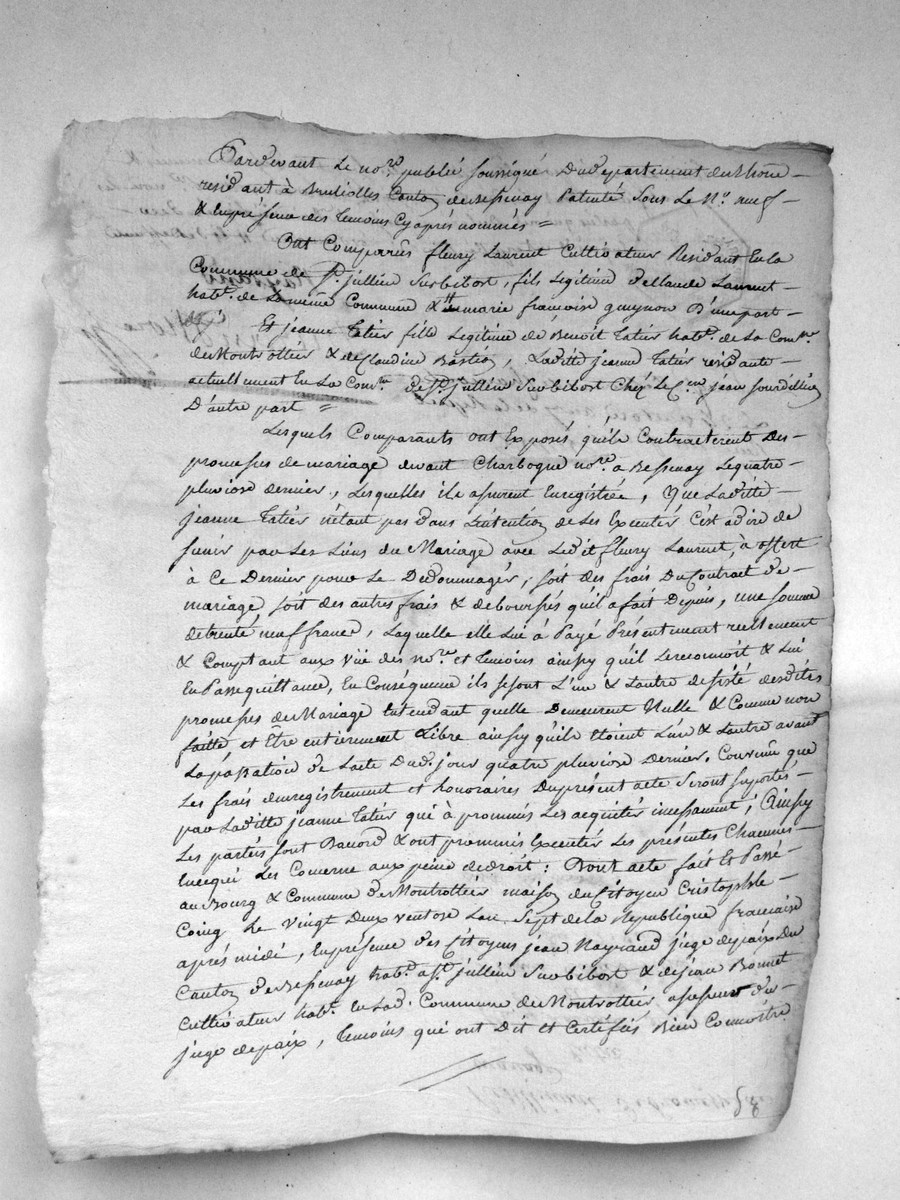 Pardevant Le no.re publié soussigné Du departement du Rhone
residant à Brulioles Canton de Bessenay Patenté Sous Le N.o
& Enpresence des temoins Cy aprés nommés =
Ont Comparrus fleury Laurent Cultivateur Residant En la
Commune de S.t jullien Surbibost, fils Legitime de Claude Laurent
hab.t de La meme Commune & marie françoise guynon D'une part
Et jeanne tatier fille Legitime de Benoit tatier hab.t de La Com.ne
de Montrottier & de Claudine Bastion, Laditte jeanne tatier residante
actuellement En La Com.ne de S.t jullien Surbibost Chez Le C.en jean
D'autre part =
Lesquels Comparants ont Exposés qu'ils Contracterent Des
promesses de mariage devant Charbogne no.re a Bessenay Lequatre
pluviose dernier, Lesquelles ils assurent Enregistrée, Que Laditte
jeanne tatier n'étant pas dans L'intention de Les Executer C'est adire de
s'unir par Les Liens du Mariage avec Ledit fleury Laurent, à offert
à Ce Dernier pour Le Dedommager, soit des frais Du Contract de
mariage, soit des autres frais & deboursés qu'il a fait Depuis, une somme
de trente neuf francs, Laquelle elle Lui à Payé Présentement reellement
& Comptant aux Vüe des no.re et temoins ainsy qu'il Lereconnoit & Lui
En Passe quittance, En Conséquence ils se sont L'un & L'autre desisté desdites
promesses de Mariage Entendant quelle Demeurent Nulle & Comme non
faitte et Être entierement Libre ainsy qu'ils étoient L'un & L'autre avant
La passation de L'acte Dud. jour quatre pluviose Dernier. Convenu que
Les frais d'enregistrement et honoraires Du présent acte Seront suportés
par Laditte jeanne tatier qui à prommis Les acquitter incessament, Ainsy
Les partés sont Dacord & ont prommis Executer Les présentes Chacunes
En cequi Les Concerne aux peine de droit: Dont acte fait Et Passé
au Bourg & Commune de Montrottier maison du Citoyen Cristophle
Coing Le vingt Deux ventose L'an Sept de la Republique francaise
aprés midi, Enpresence des Citoyens jean Nayrand juge depaix Du
Canton de Bessenay hab.t a S.t jullien Surbibost & de jean Bonnet
Cultivateur hab.t En Lad. Commune de Montrottier assesseur du
juge de paix, temoins qui ont Dit et Certifiés Bien Connoitre